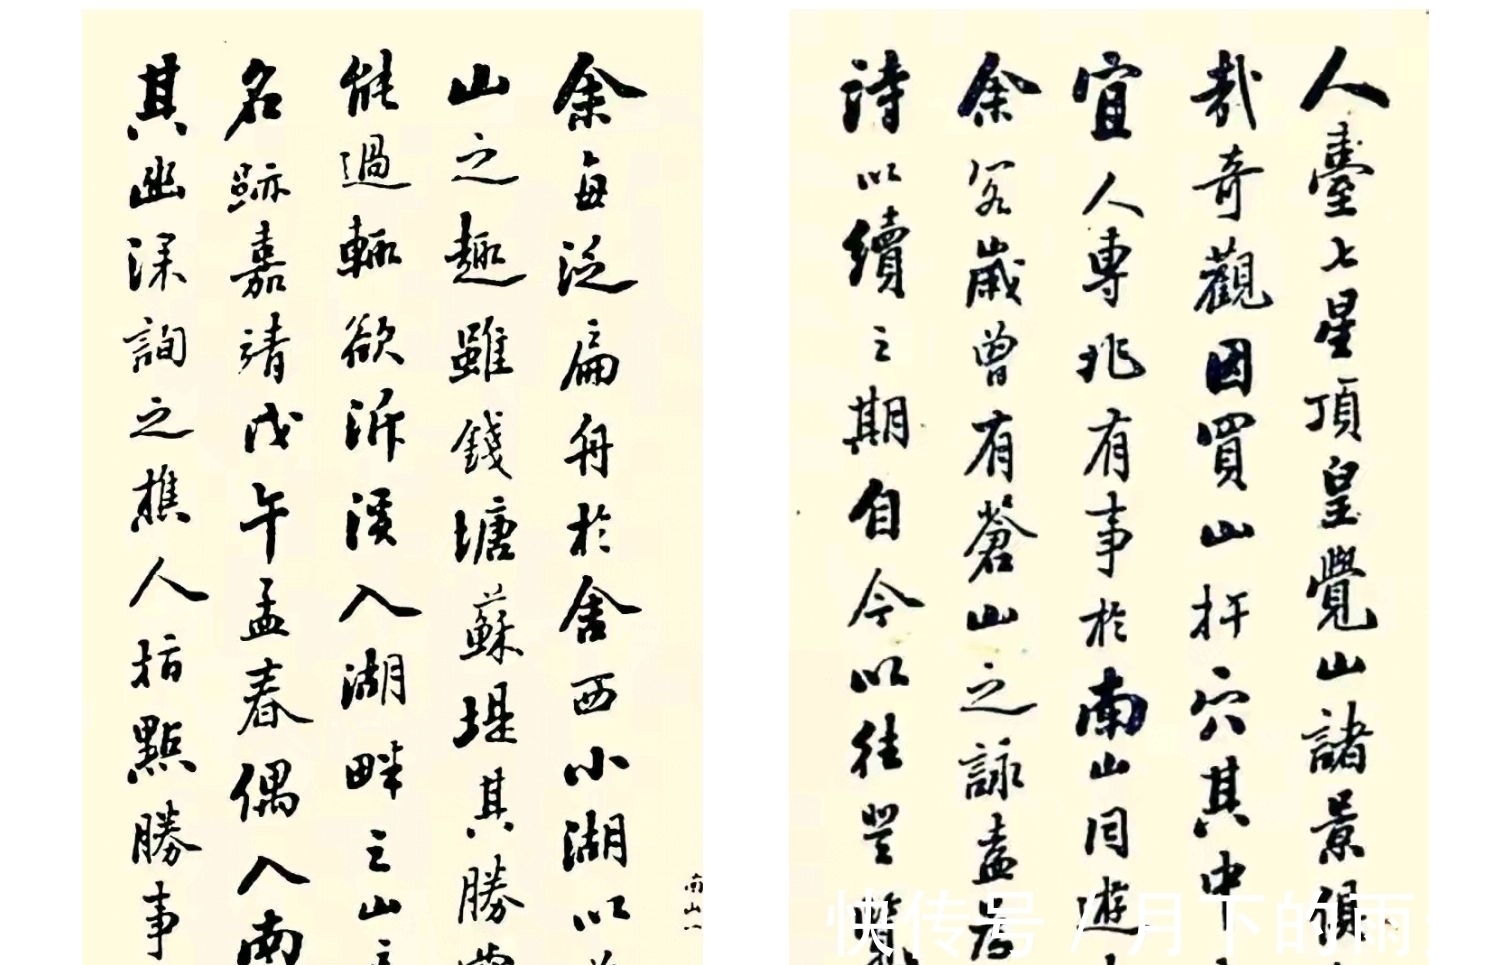 余每泛扁舟於舍西小湖以
山之趣雖錢塘蘇堤其勝
能過輒欲泝溪入湖畔之山
名跡嘉靖戊午孟春偶入南
其幽深詢之樵人指點勝事
南山
人臺七星頂皇覺山諸景領
哉奇觀因買山扞穴其中
宜人專兆有事於南山同遊
余客歲曾有蒼山之詠盍
詩以續之期自今以往
快传号 / 月下的雨